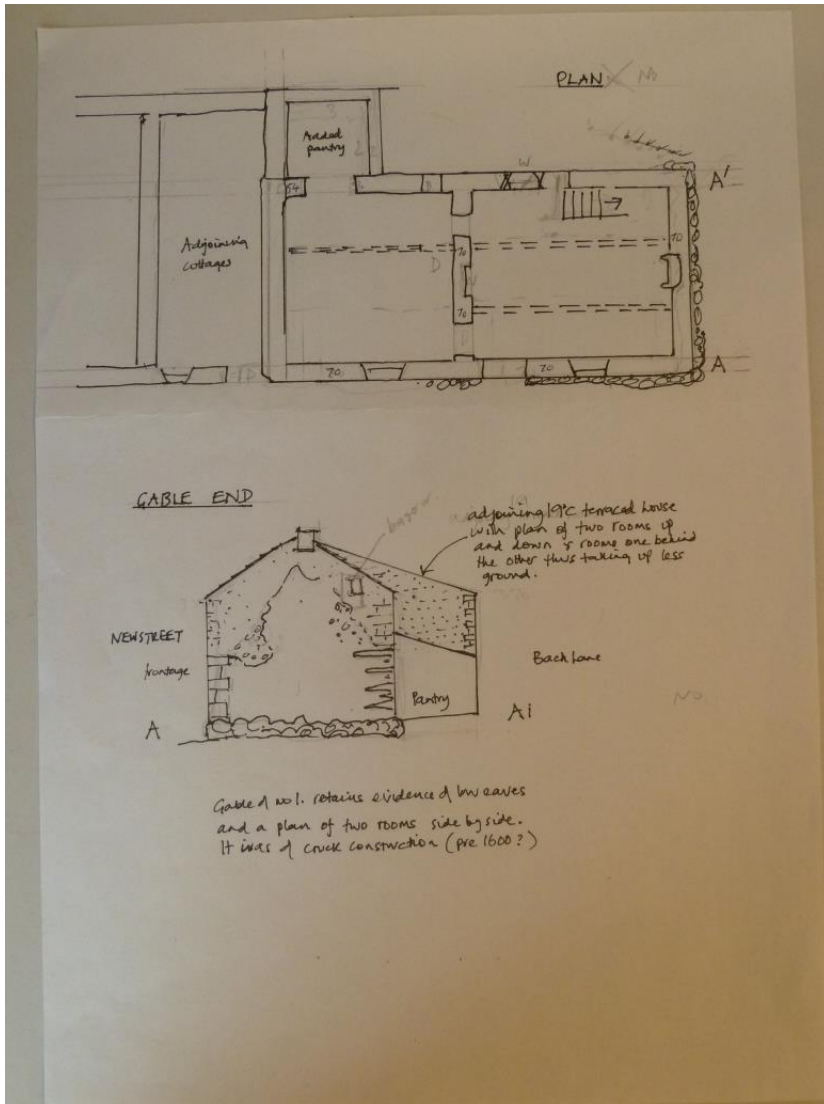 PLAN No
Added
pantry
W
A'
54
Adjoining
cottages
70
70
D
70
A
70
70
GABLE END
adjoining 19°C terraced house
with plan of two rooms up
and down & rooms one behind
the other thus taking up less
ground.
NEWSTREET
frontage
Back Lane
Pantry
No
A
A1
Gable of no 1. retains evidence of low eaves
and a plan of two rooms side by side.
It was of cruck construction (pre 1600?)